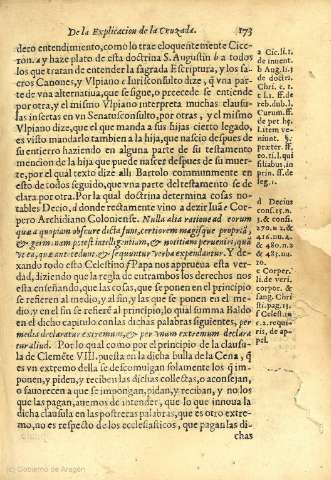 De la Explicacion de la Cruzada. 173
dero entendimiento, como lo trae eloquentemente Cice-
ron. a y haze plato de esta doctrina S. Augustin b a todos
los que tratan de entender la sagrada Escriptura, y los sa-
cros Canones, y Vlpiano e Iurisconsulto dize, q̃ vna par-
te de vna alternatiua, que se sigue, o precede se entiende
por otra, y el mismo Vlpiano interpreta muchas clausu-
las insertas en vn Senatusconsulto, por otras, y el mismo
Vlpiano dize, que el que manda a sus hijas cierto legado,
es visto mandarlo tambien a la hija, que nascio despues de
su entierro haziendo en alguna parte de su testamento
mencion de la hija que puede nascer despues de su muer-
te, por el qual texto dize alli Bartolo communmente en
esto de todos seguido, que vna parte del testamento se de
clara por otra. Por la qual doctrina determina cosas no-
tables Decio, d donde rectamente vino a dezir Iuã e Cor-
pero Archidiano Coloniense. Nulla alia ratione ad eorum
quæ a quopiam obscure dicta sunt, certiorem magisque propriã,
& germanam potest intelligentiam, & notitiam perueniri, quã
vt ea, quæ antecedunt, & sequuntur verba expendantur. Y de-
xando todo esto Celestino f Papa nos aprueua esta ver-
dad, diziendo que la regla de entrambos los derechos nos
esta enseñando, que las cosas, que se ponen en el principio
se refieren al medio, y al fin, y las que se ponen en el me-
dio, y en el fin se referẽ al principio, lo qual summa Baldo
en el dicho capitulo con las dichas palabras siguientes, per
media declaratur extremum, & per vnum extremum declara
tur aliud. Por lo qual como por el principio de la clausu-
la de Clemẽte VIII. puesta en la dicha bulla de la Cena, q̃
es vn extremo della se descomulgan solamente los q̃ im-
ponen, y piden, y reciben las dichas collectas, o aconsejan,
o fauorecen a que se impongan, pidan, y reciban, y no los
que las pagan, auemos de entender, que lo que innoua la
dicha clausula en las postreras palabras, que es otro extre-
mo, no es respecto de los ecclesiasticos, que pagan las di-
chas
a Cic. li. 1.
de inuent.
b Aug. li. 3
de doct.
d Decius
(c) Gobierno de Aragón